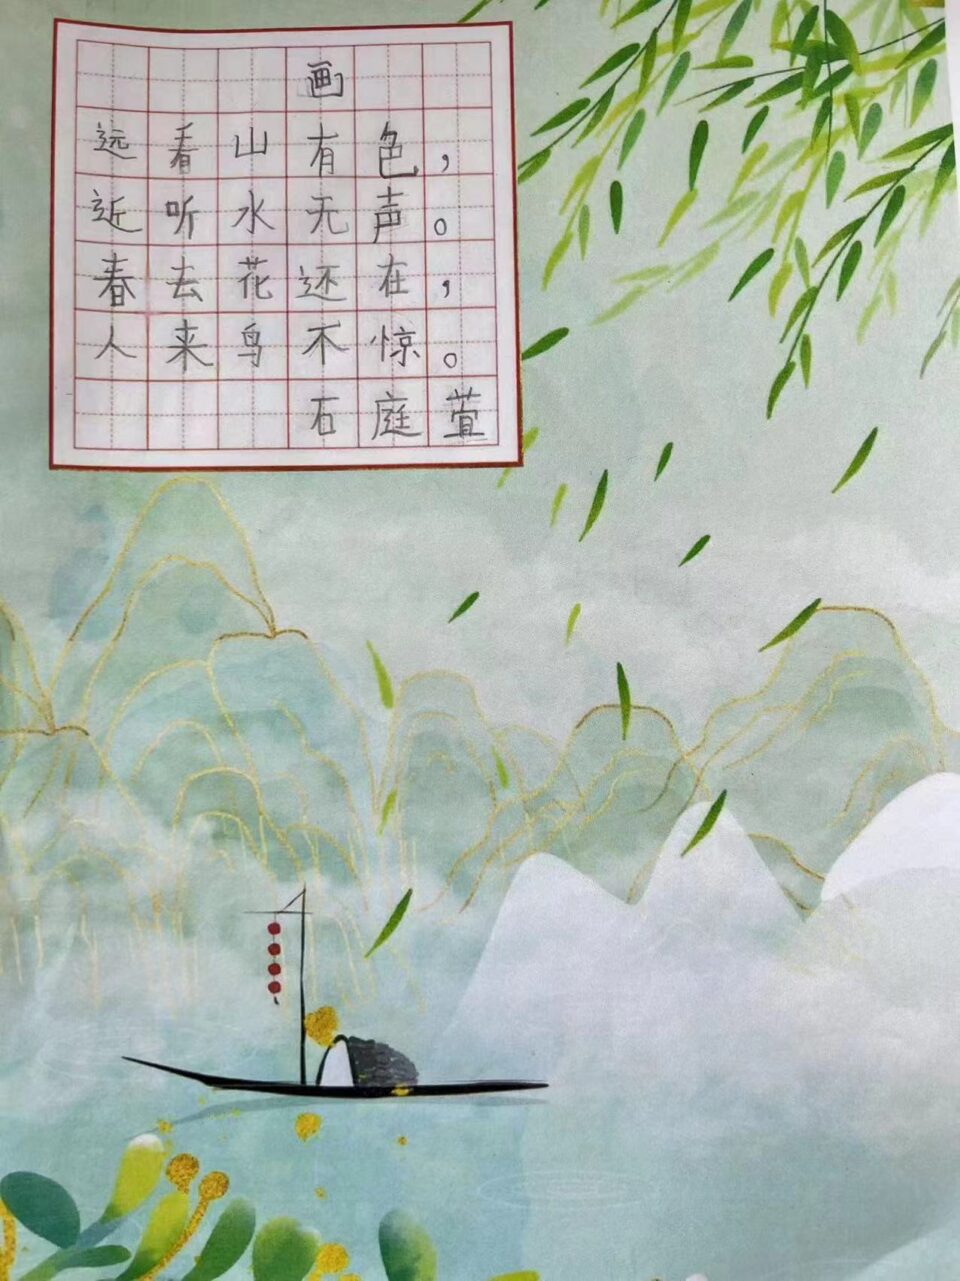 画
远看山有色，
近听水无声。
春去花还在，
人来鸟不惊。
石庭萱